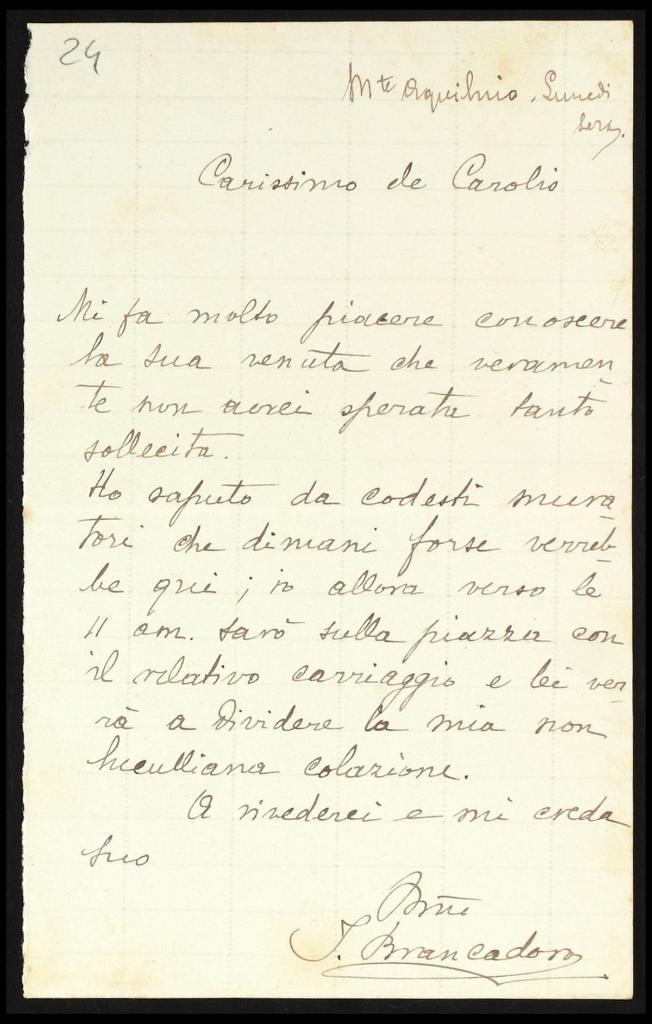 24
Mte Aquilino. Lunedì
sera.
Carissimo de Carolis
Mi fa molto piacere conoscere
la sua venuta che veramen
te non avrei sperata tanto
sollecita.
Ho saputo da codesti mura
tori che dimani forse verreb-
be qui; io allora verso le
11 am. sarò sulla piazza con
il relativo carriaggio e lei ver-
rà a dividere la mia non
luculliana colazione.
A rivederci e mi creda
suo
J. Brancadoro